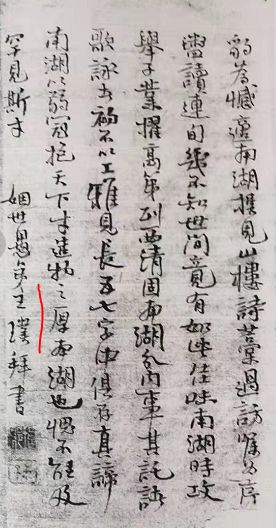 豹為憾適南湖携見山樓詩藁過訪僕為序
嘗讀連日幾不知世間竟有如此佳味南湖時攻
舉子業擢高第列西清固南湖分内事其託諸
歌詠者初不以工雅見長五七字中俱存真諦
南湖以弱冠抱天下才造物之厚南湖也愧不能及
罕見斯才 姻世愚弟王璞拜書